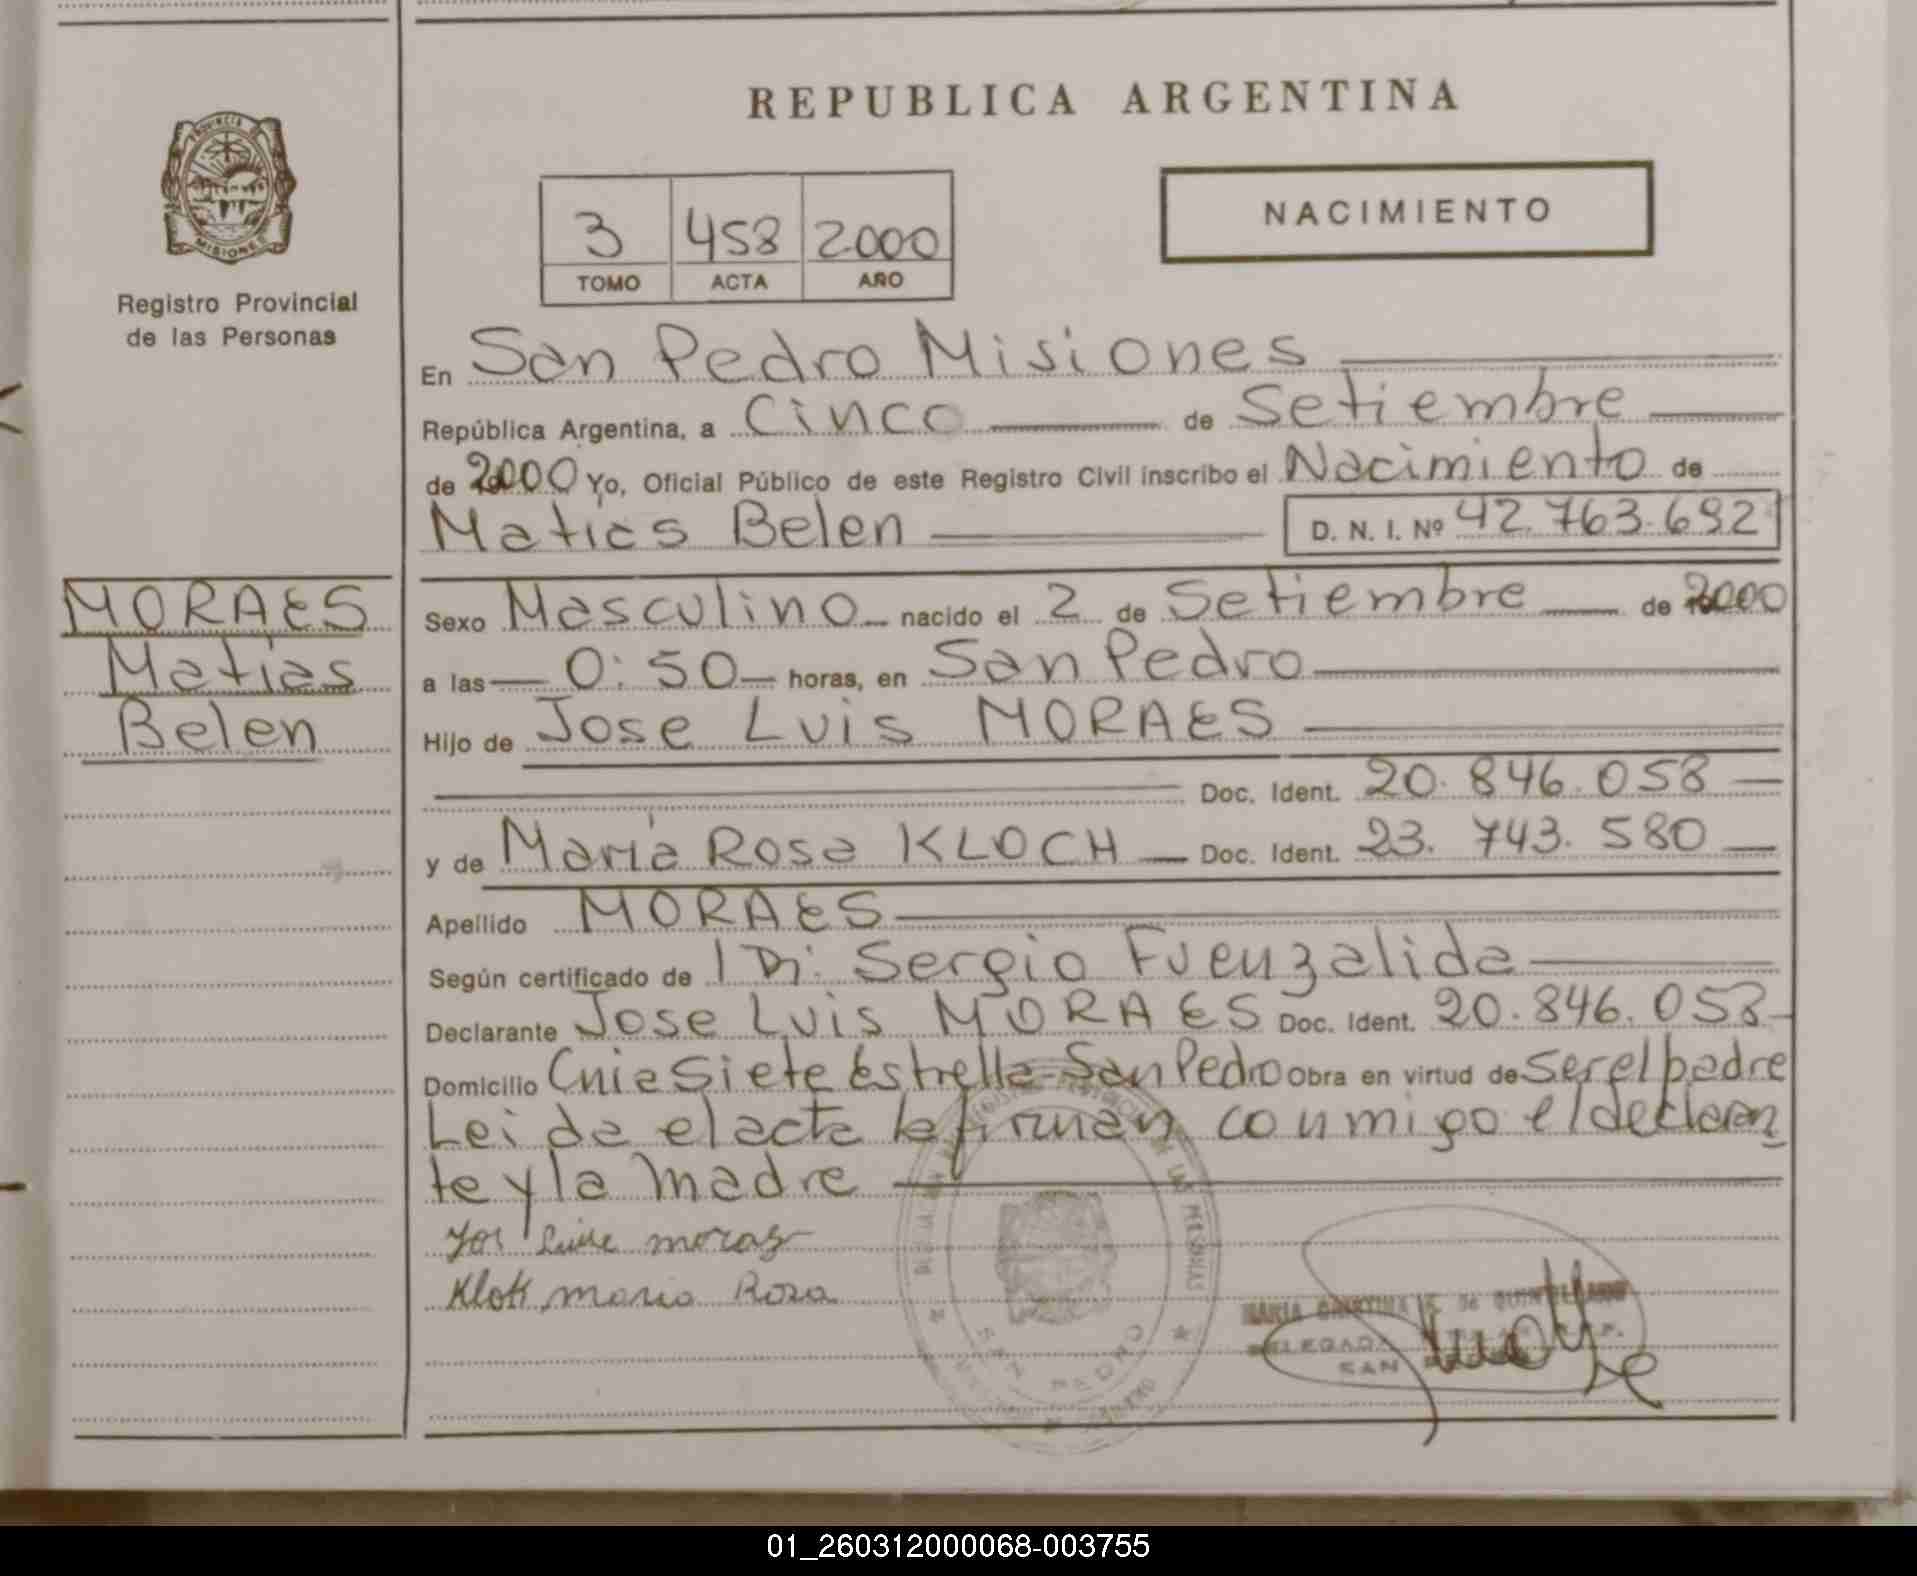 REPUBLICA ARGENTINA
PROVINCIA DE
MISIONES
Registro Provincial
de las Personas
3 458 2000
TOMO ACTA AÑO
NACIMIENTO
En San Pedro Misiones
República Argentina, a Cinco de Setiembre
de 2000 Yo, Oficial Público de este Registro Civil inscribo el Nacimiento de
Matias Belen D. N. I. Nº 42.763.692
MORAES
Matías
Belen
Sexo Masculino nacido el 2 de Setiembre de 2000
a las 0:50 horas, en San Pedro
Hijo de Jose Luis MORAES
Doc. Ident. 20.846.058
y de María Rosa KLOCH Doc. Ident. 23.743.580
Apellido MORAES
Según certificado de Sergio Fuenzalida
Declarante Jose Luis MORAES Doc. Ident. 20.846.058
Domicilio Cnia Siete Estrella-San Pedro Obra en virtud de Ser el padre
Leida el acta la firman conmigo el declaran
te y la madre
Luis moraes
Klok maria Rosa
LAS PERSONAS
SAN PEDRO
MARIA CRISTINA DE
DELEGADA
SAN
01_260312000068-003755